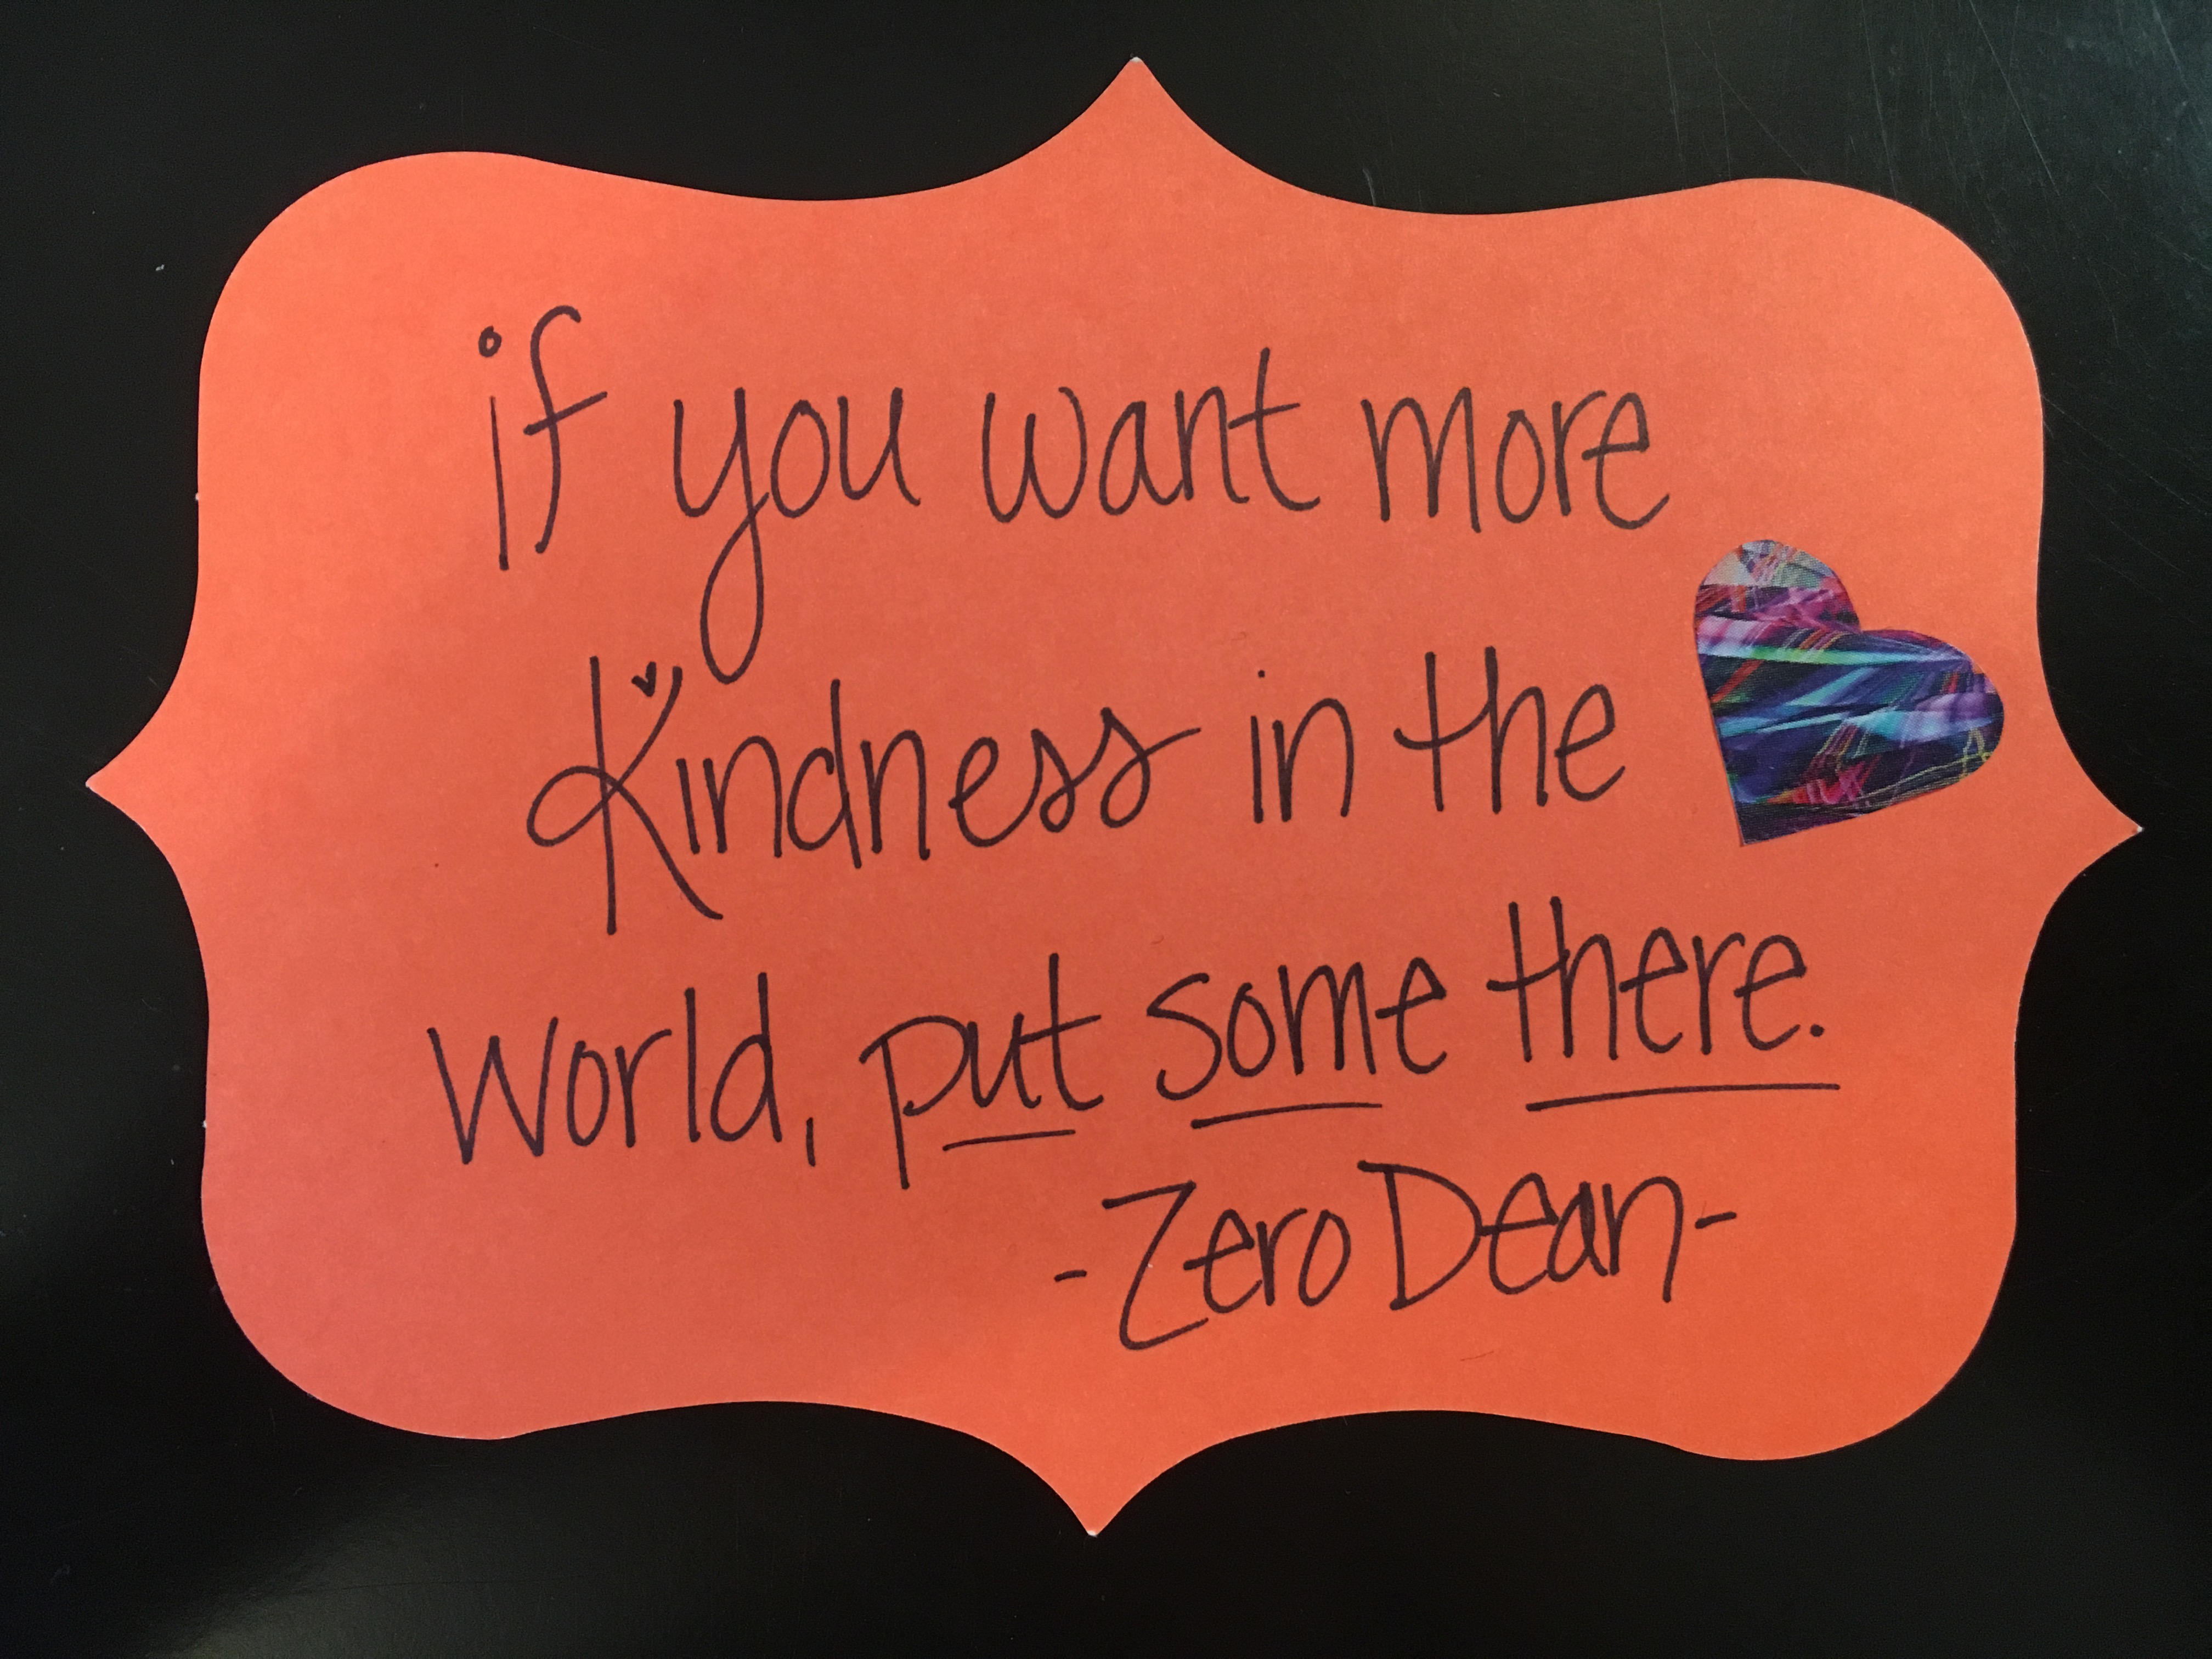 if you want more
Kindness in the
World, put some there.
-Zero Dean-